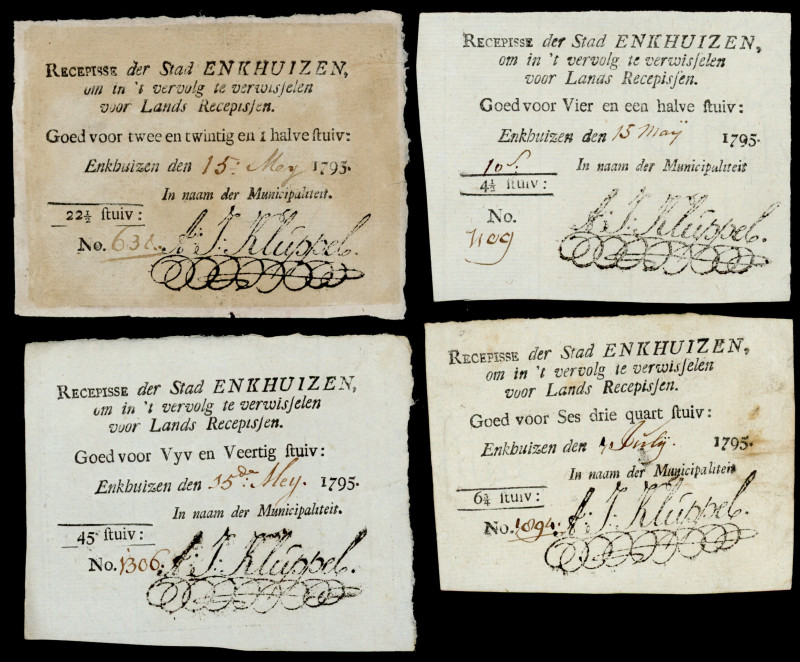 RECEPISSE der Stad ENKHUIZEN,
om in 't vervolg te verwisselen
voor Lands Recepissen.
Goed voor twee en twintig en 1 halve stuiv:
Enkhuizen den 15 Mey 1795.
In naam der Municipaliteit.
22½ stuiv:
No. A: J: Kluppel.
RECEPISSE der Stad ENKHUIZEN,
om in 't vervolg te verwisselen
voor Lands Recepissen.
Goed voor Vier en een halve stuiv:
Enkhuizen den 15 Maÿ 1795.
In naam der Municipaliteit
4½ stuiv:
No. A: J: Kluppel.
1109
RECEPISSE der Stad ENKHUIZEN,
om in 't vervolg te verwisselen
voor Lands Recepissen.
Goed voor Vyv en Veertig stuiv:
Enkhuizen den 15de Mey. 1795.
In naam der Municipaliteit.
45 stuiv:
No. 1306. A: J: Kluppel.
RECEPISSE der Stad ENKHUIZEN,
om in 't vervolg te verwisselen
voor Lands Recepissen.
Goed voor Ses drie quart stuiv:
Enkhuizen den Julÿ. 1795.
In naam der Municipaliteit
6¾ stuiv:
No. 1894. A: J: Kluppel.